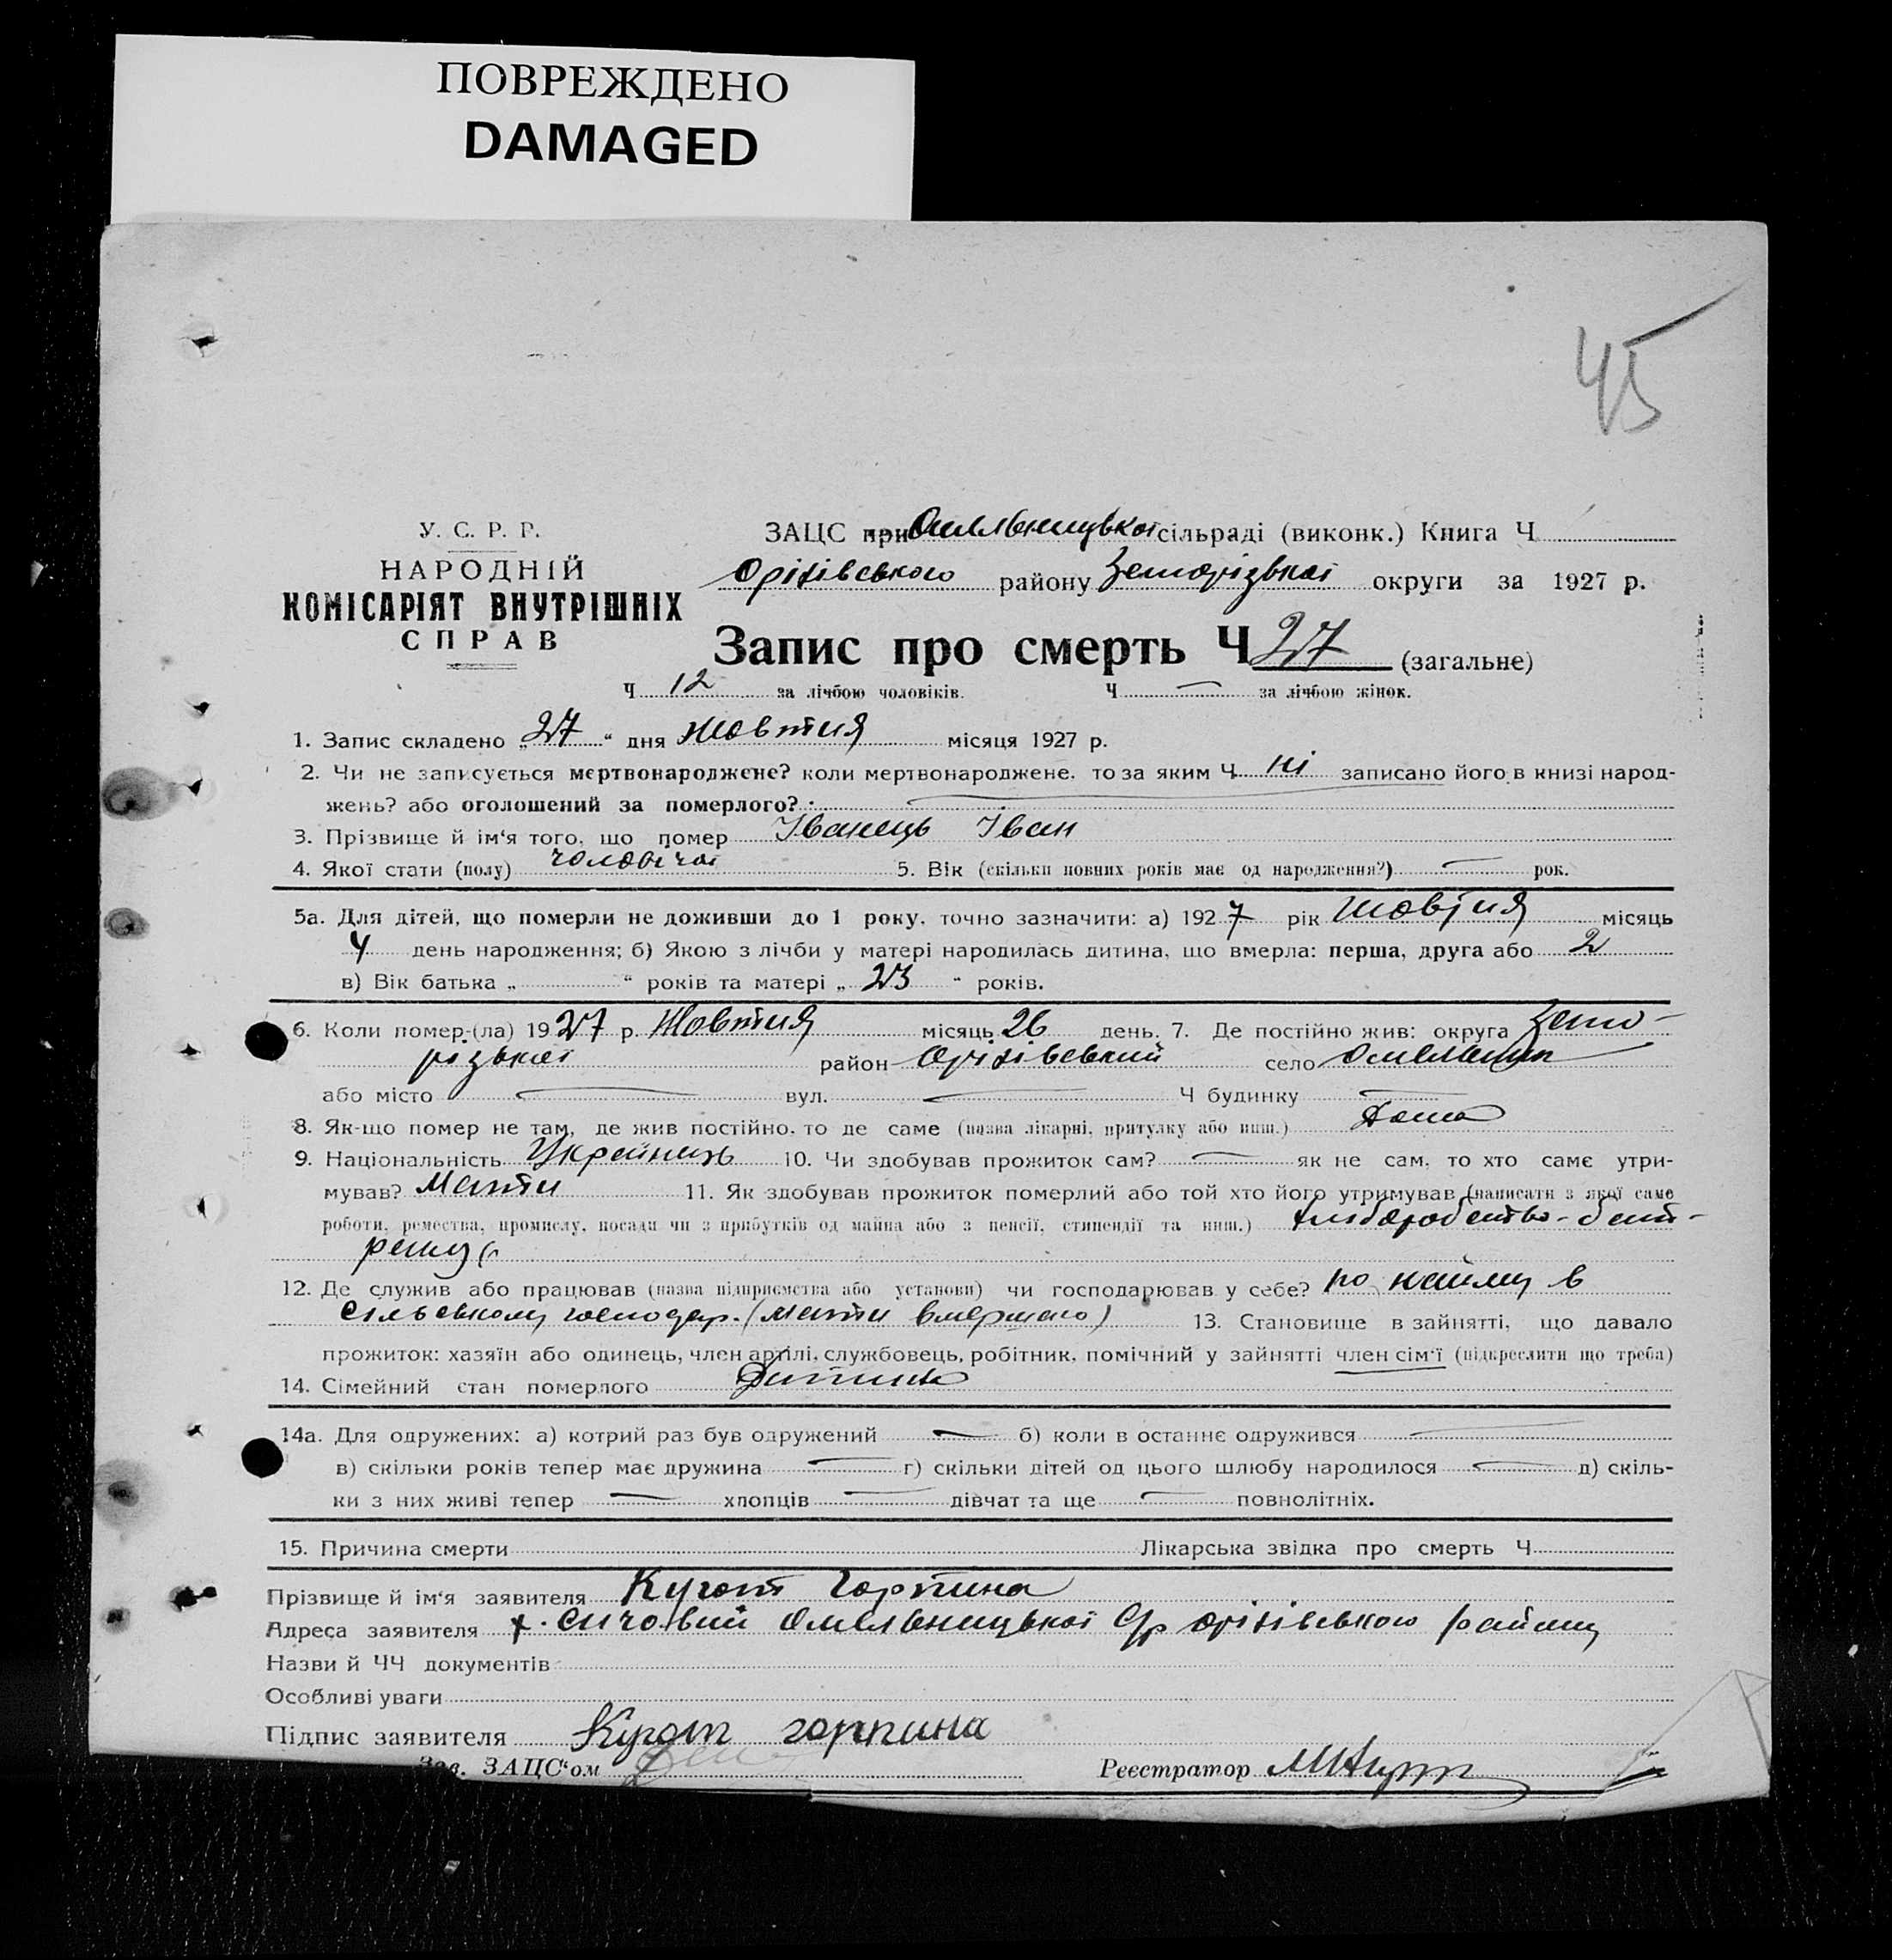 ПОВРЕЖДЕНО
DAMAGED
45
У. С. Р. Р.
НАРОДНІЙ
КОМІСАРІЯТ ВНУТРІШНІХ
СПРАВ
ЗАЦС при Омельницької сільраді (виконк.) Книга Ч
Оріхівського району Запорізької округи за 1927 р.
Запис про смерть Ч 27 (загальне)
Ч 12 за лічбою чоловіків. Ч — за лічбою жінок.
1. Запис складено „27“ дня жовтня місяця 1927 р.
2. Чи не записується мертвонароджене? коли мертвонароджене, то за яким Ч ні записано його в книзі народ-
жень? або оголошений за померлого?
3. Прізвище й ім‘я того, що помер Іванець Іван
4. Якої стати (полу) чоловічої 5. Вік (скільки повних років має од народження?) — рок.
5а. Для дітей, що померли не доживши до 1 року, точно зазначити: а) 1927 рік жовтня місяць
4 день народження; б) Якою з лічби у матері народилась дитина, що вмерла: перша, друга або 2
в) Вік батька „ “ років та матері „ 23 “ років.
6. Коли помер-(ла) 1927 р. Жовтня місяць 26 день. 7. Де постійно жив: округа Запо-
різької район Оріхівський село Омельник
або місто — вул. — Ч будинку —
8. Як-що помер не там, де жив постійно, то де саме (назва лікарні, притулку або инш.) Дома
9. Національність Українець 10. Чи здобував прожиток сам? — як не сам, то хто саме утри-
мував? Мати 11. Як здобував прожиток померлий або той хто його утримував (написати з якої саме
роботи, ремества, промислу, посади чи з прибутків од майна або з пенсії, стипендії та инш.) хліборобство-
12. Де служив або працював (назва підприємства або установи) чи господарював у себе? по найму в
сільському господар. (мати вмершого) 13. Становище в зайнятті, що давало
прожиток: хазяїн або одинець, член артілі, службовець, робітник, помічний у зайнятті член сім‘ї (підкреслити що треба)
14. Сімейний стан померлого Дитина
14а. Для одружених: а) котрий раз був одружений — б) коли в останнє одружився —
в) скільки років тепер має дружина — г) скільки дітей од цього шлюбу народилося — д) скіль-
ки з них живі тепер — хлопців — дівчат та ще — повнолітніх.
15. Причина смерти Лікарська звідка про смерть Ч
Прізвище й ім‘я заявителя Горпина
Адреса заявителя х. Сичовий Омельницької С/р Оріхівського району
Назви й ЧЧ документів
Особливі уваги
Підпис заявителя горпина
Зав. ЗАЦС‘ом Реєстратор